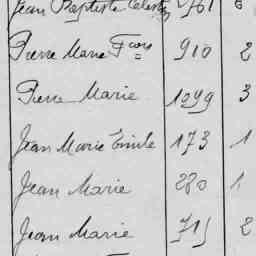 Jean Baptiste Celestin 1761 6
Pierre Marie Fçois 910 2
Pierre Marie 1099 3
Jean Marie Emile 173 1
Jean Marie 280 1
Jean Marie 715 2